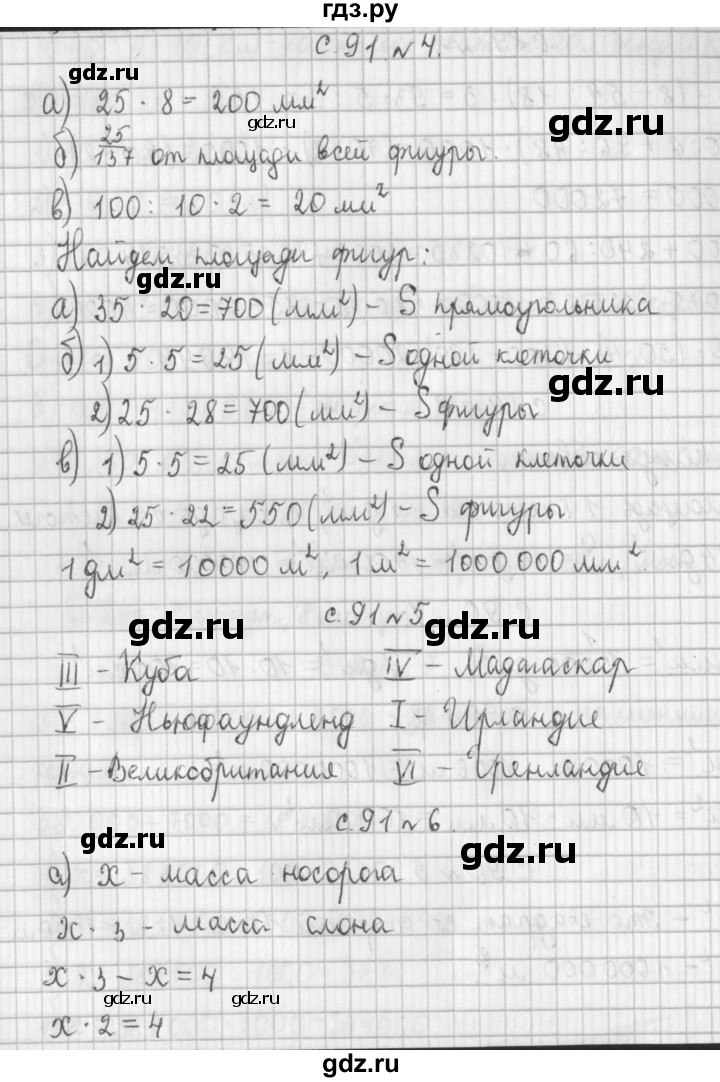 гдз.ру
с. 91. № 4.
gdz.ru
а) 25 · 8 = 200 мм²
gdz.ru
б) 25/137 от площади всей фигуры.
в) 100 : 10 · 2 = 20 мм²
Найдем площади фигур:
gdz.ru
а) 35 · 20 = 700 (мм²) – S прямоугольника
б) 1) 5 · 5 = 25 (мм²) – S одной клеточки
gdz.ru
2) 25 · 28 = 700 (мм²) – S фигуры
в) 1) 5 · 5 = 25 (мм²) – S одной клеточки
gdz.ru
2) 25 · 22 = 550 (мм²) – S фигуры
1 дм² = 10000 м², 1 м² = 1000 000 мм².
с. 91 № 5
gdz.ru gdz.ru
III – Куба IV – Мадагаскар
V – Ньюфаундленд I – Ирландие
gdz.ru
II – Великобритания VI – Гренландие
с. 91 № 6.
gdz.ru gdz.ru
а) x – масса носорога
x · 3 – масса слона
x · 3 – x = 4
gdz.ru gdz.ru
x · 2 = 4
gdz.ru
gdz.ru